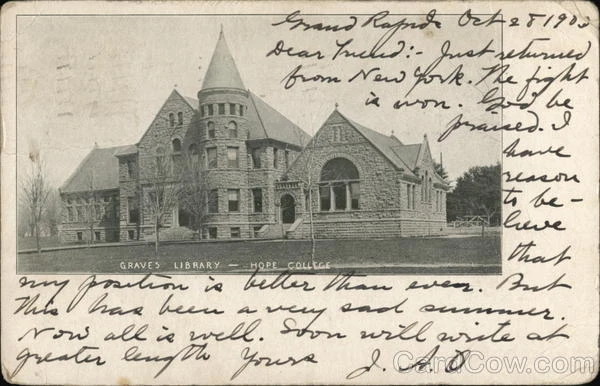 Grand Rapids Oct 28 190
Dear Friend:- Just returned
from New York. The fight
is won. God be
praised. I
have
reason
to be-
lieve
that
GRAVES LIBRARY – HOPE COLLEGE
my position is better than ever. But
this has been a very sad summer.
Now all is well. Soon will write at
greater length Yours J.
CardCow.com